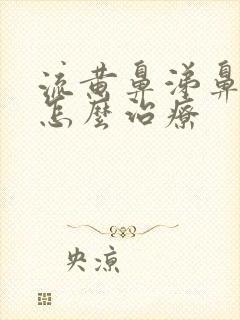 流黄鼻涕鼻
怎麼治療
央凉